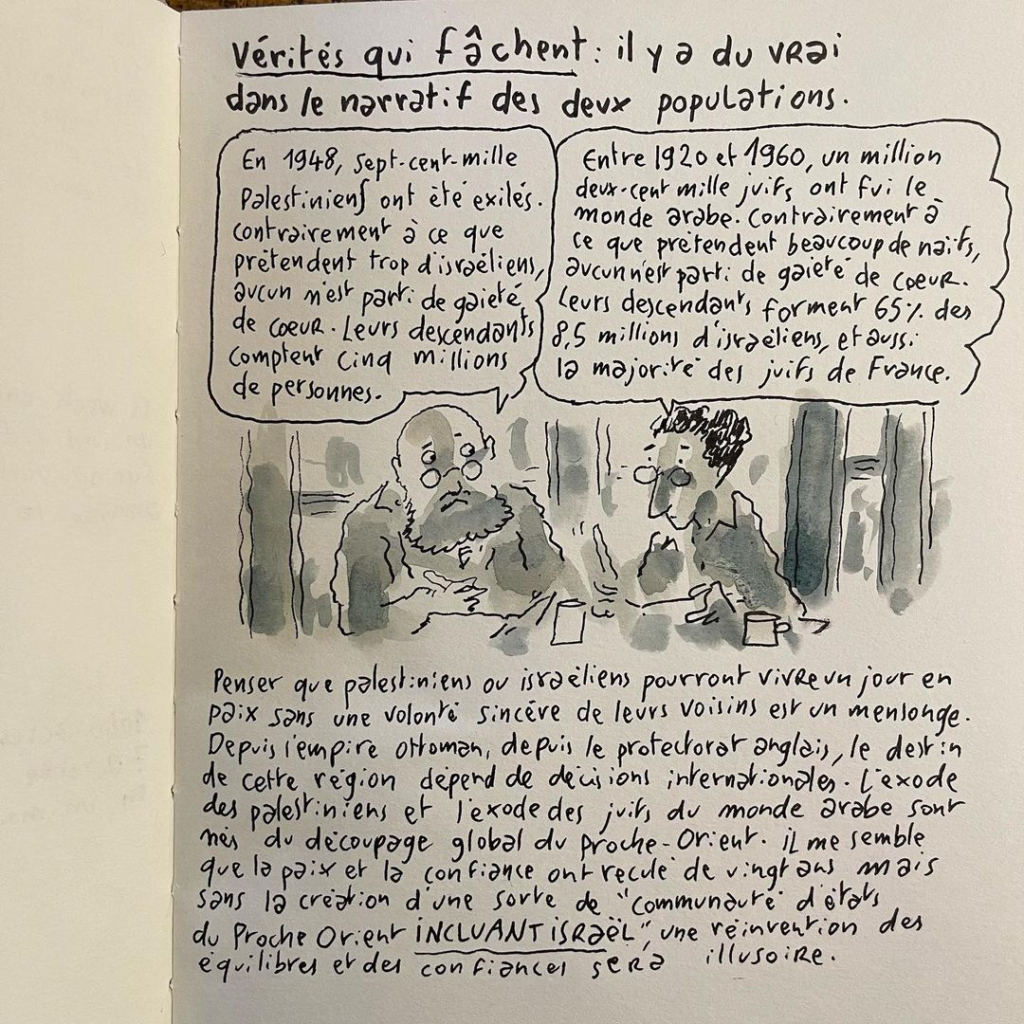 Vérités qui fâchent : il y a du vrai
dans le narratif des deux populations.
En 1948, sept-cent-mille
Palestiniens ont été exilés.
contrairement à ce que
prétendent trop d'israéliens,
aucun n'est parti de gaieté
de coeur. Leurs descendants
comptent cinq millions
de personnes.
Entre 1920 et 1960, un million
deux-cent mille juifs ont fui le
monde arabe. Contrairement à
ce que prétendent beaucoup de naïfs,
aucun n'est parti de gaieté de coeur.
Leurs descendants forment 65% des
8,5 millions d'israéliens, et aussi
la majorité des juifs de France.
Penser que palestiniens ou israéliens pourront vivre un jour en
paix sans une volonté sincère de leurs voisins est un mensonge.
Depuis l'empire ottoman, depuis le protectorat anglais, le destin
de cette région dépend de décisions internationales. L'exode
des palestiniens et l'exode des juifs du monde arabe sont
nés du découpage global du Proche-Orient. il me semble
que la paix et la confiance ont reculé de vingt ans mais
sans la création d'une sorte de "communauté d'états
du Proche Orient INCLUANT ISRAËL", une réinvention des
équilibres et des confiances sera illusoire.